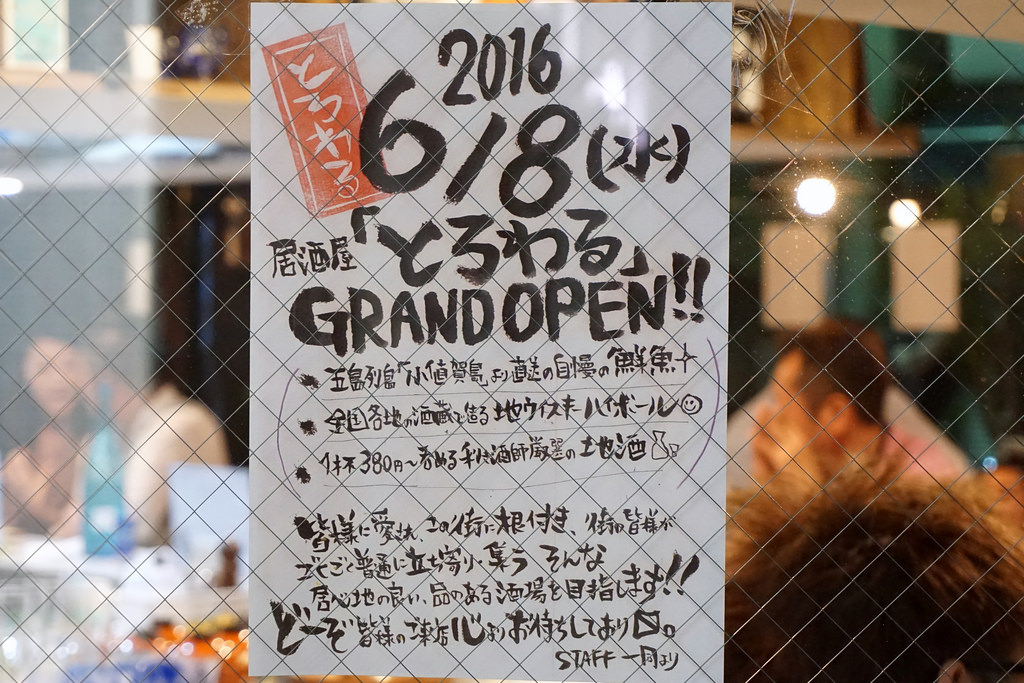 とろわる
2016
6/8(水)
居酒屋「とろわる」
GRAND OPEN!!
五島列島「小値賀島」より直送の自慢の鮮魚
全国各地の酒蔵で造る地ウイスキーハイボール
1杯380円〜呑める利き酒師厳選の地酒
皆様に愛され、この街に根付き、街の皆様が
ごくごく普通に立ち寄り、集う そんな
居心地の良い、品のある酒場を目指します!!
どーぞ皆様のご来店心よりお待ちしており〼。
STAFF一同より